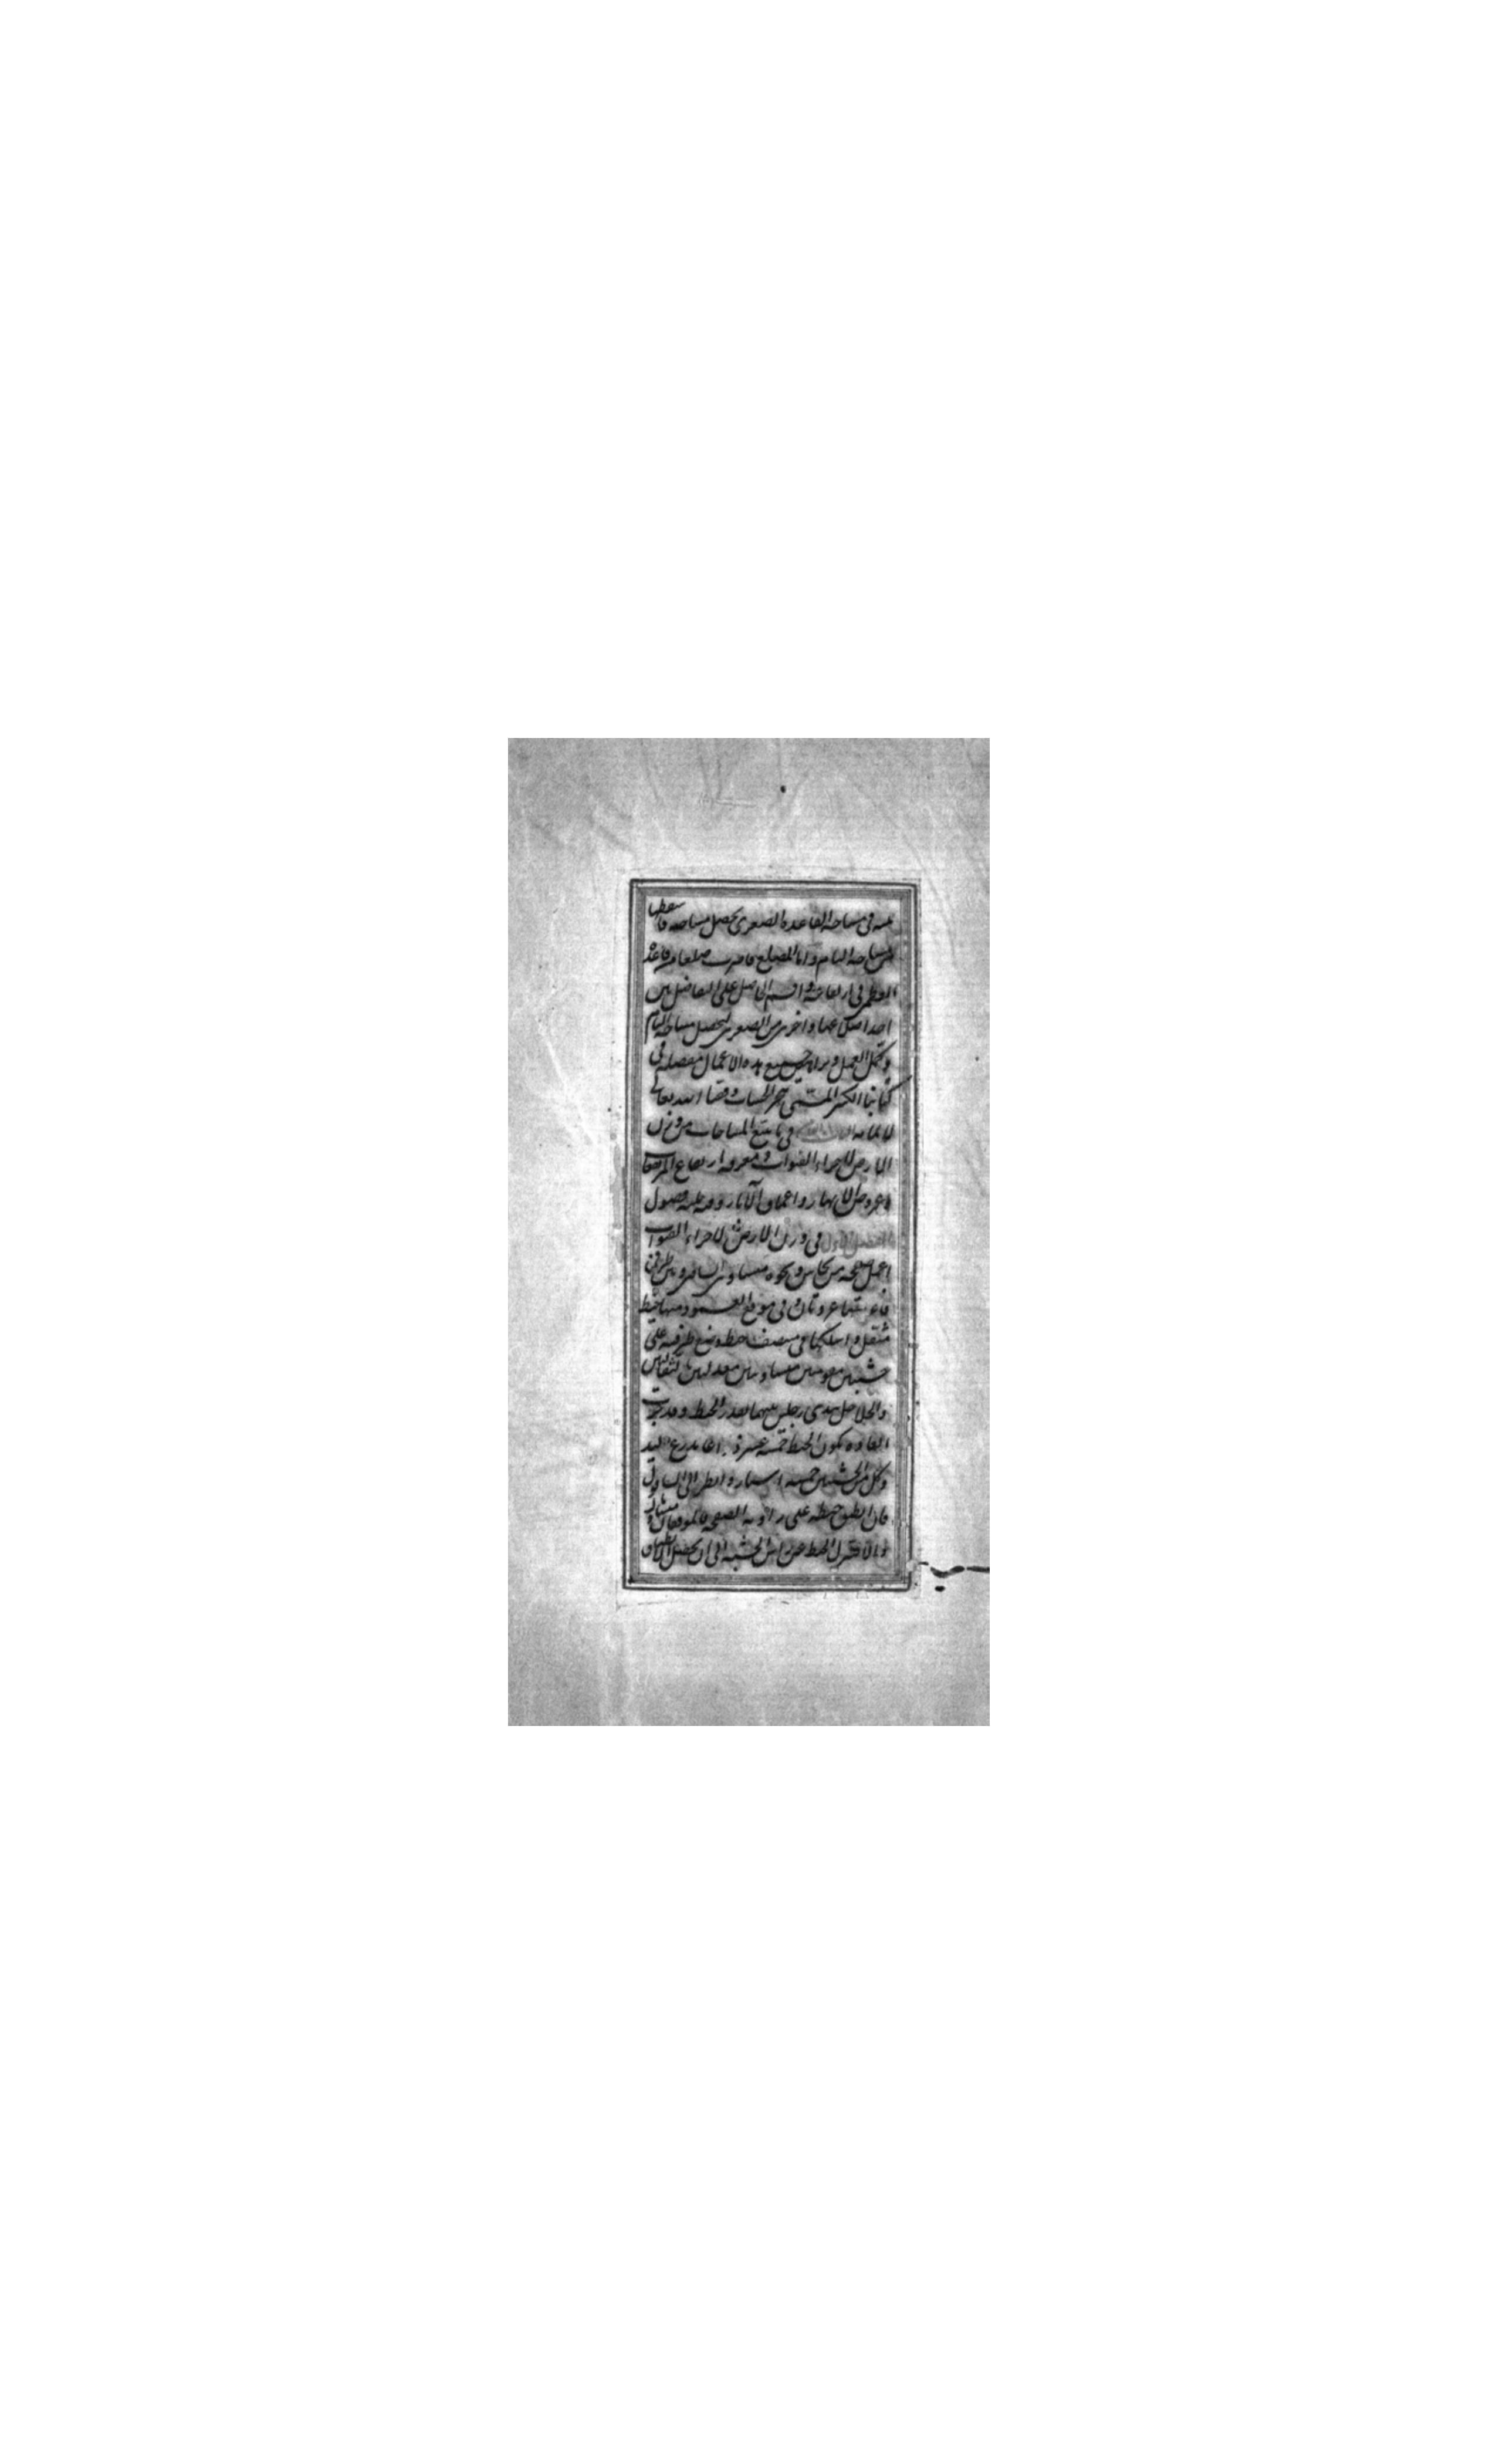 ثلثه في مساحة القاعدة الصغرى يحصل مساحته فاسقطها
من مساحة التام واما المضلع فاضرب ضلعا من قاعدته
العظمى في ارتفاعه واقسم الحاصل على التفاضل بين
احد اضلاعها واخرى من الصغرى ليحصل مساحة التام
وكمل العمل وبراهين جميع هذه الاعمال مفصلة في
كتابنا الكبير المسمى ببحر الحساب وفقنا الله تعالى
لاتمامه الباب في ما يتبع المساحات من وزن
الارض لاجراء القنوات ومعرفة ارتفاع المرتفعات
وعروض الانهار واعماق الآبار وفيه ثلثة فصول
الفصل الاول في وزن الارض لاجراء القنوات
اعمل صفحة من نحاس ونحوه متساوي الساقين وبين طرفي
قاعدتها عروتان وفي موقع العمود منها خيط
مثقل واسلكها في منتصف خيط وضع طرفيه على
خشبتين مقومتين متساويتين معدلتين بالثقالتين
والجلاجل بيدي رجلين بينهما بقدر الخيط وقد جرت
العادة بكون الخيط خمسة عشر ذراعا بذراع اليد
وكل من الخشبتين خمسة اشبار وانظر الى الشاقول
فان انطبق خيطه على زاوية الصفحة فالموقفان متساويان
والا فنزل الخيط عن راس الخشبة الى ان يحصل الانطباق